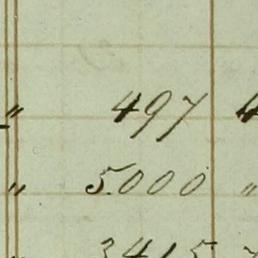 " 497 4
" 5000 "
" 3415